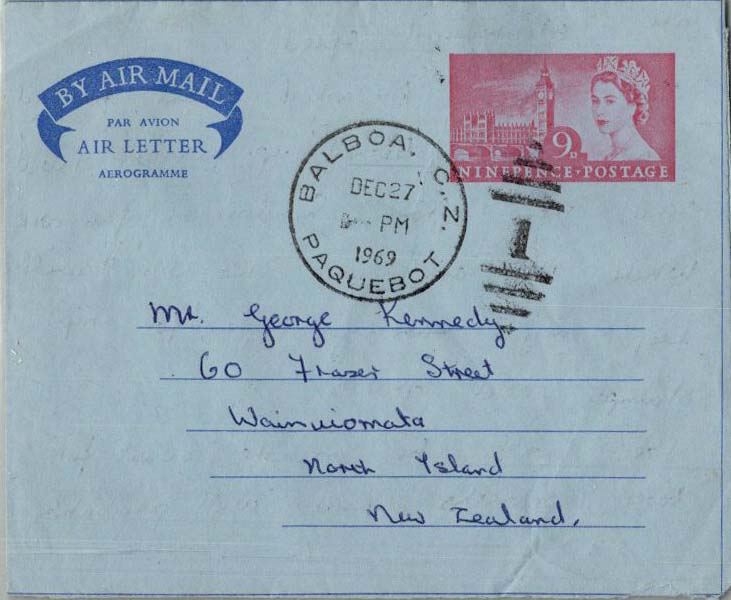 BY AIR MAIL
PAR AVION
AIR LETTER
AEROGRAMME
9D
NINEPENCE · POSTAGE
BALBOA, C.Z.
DEC27
PM
1969
PAQUEBOT
1
Mr. George Kennedy
60 Frazer Street
Wainuiomata
North Island
New Zealand.